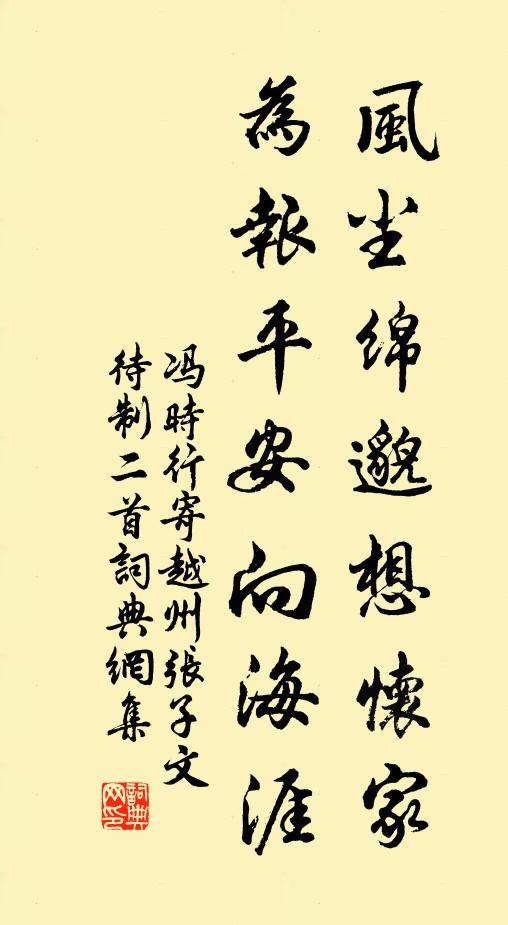 風尘绵邈想懷家
為報平安向海涯
冯時行寄越州張子文
待制二首詞典網集
詞典网印